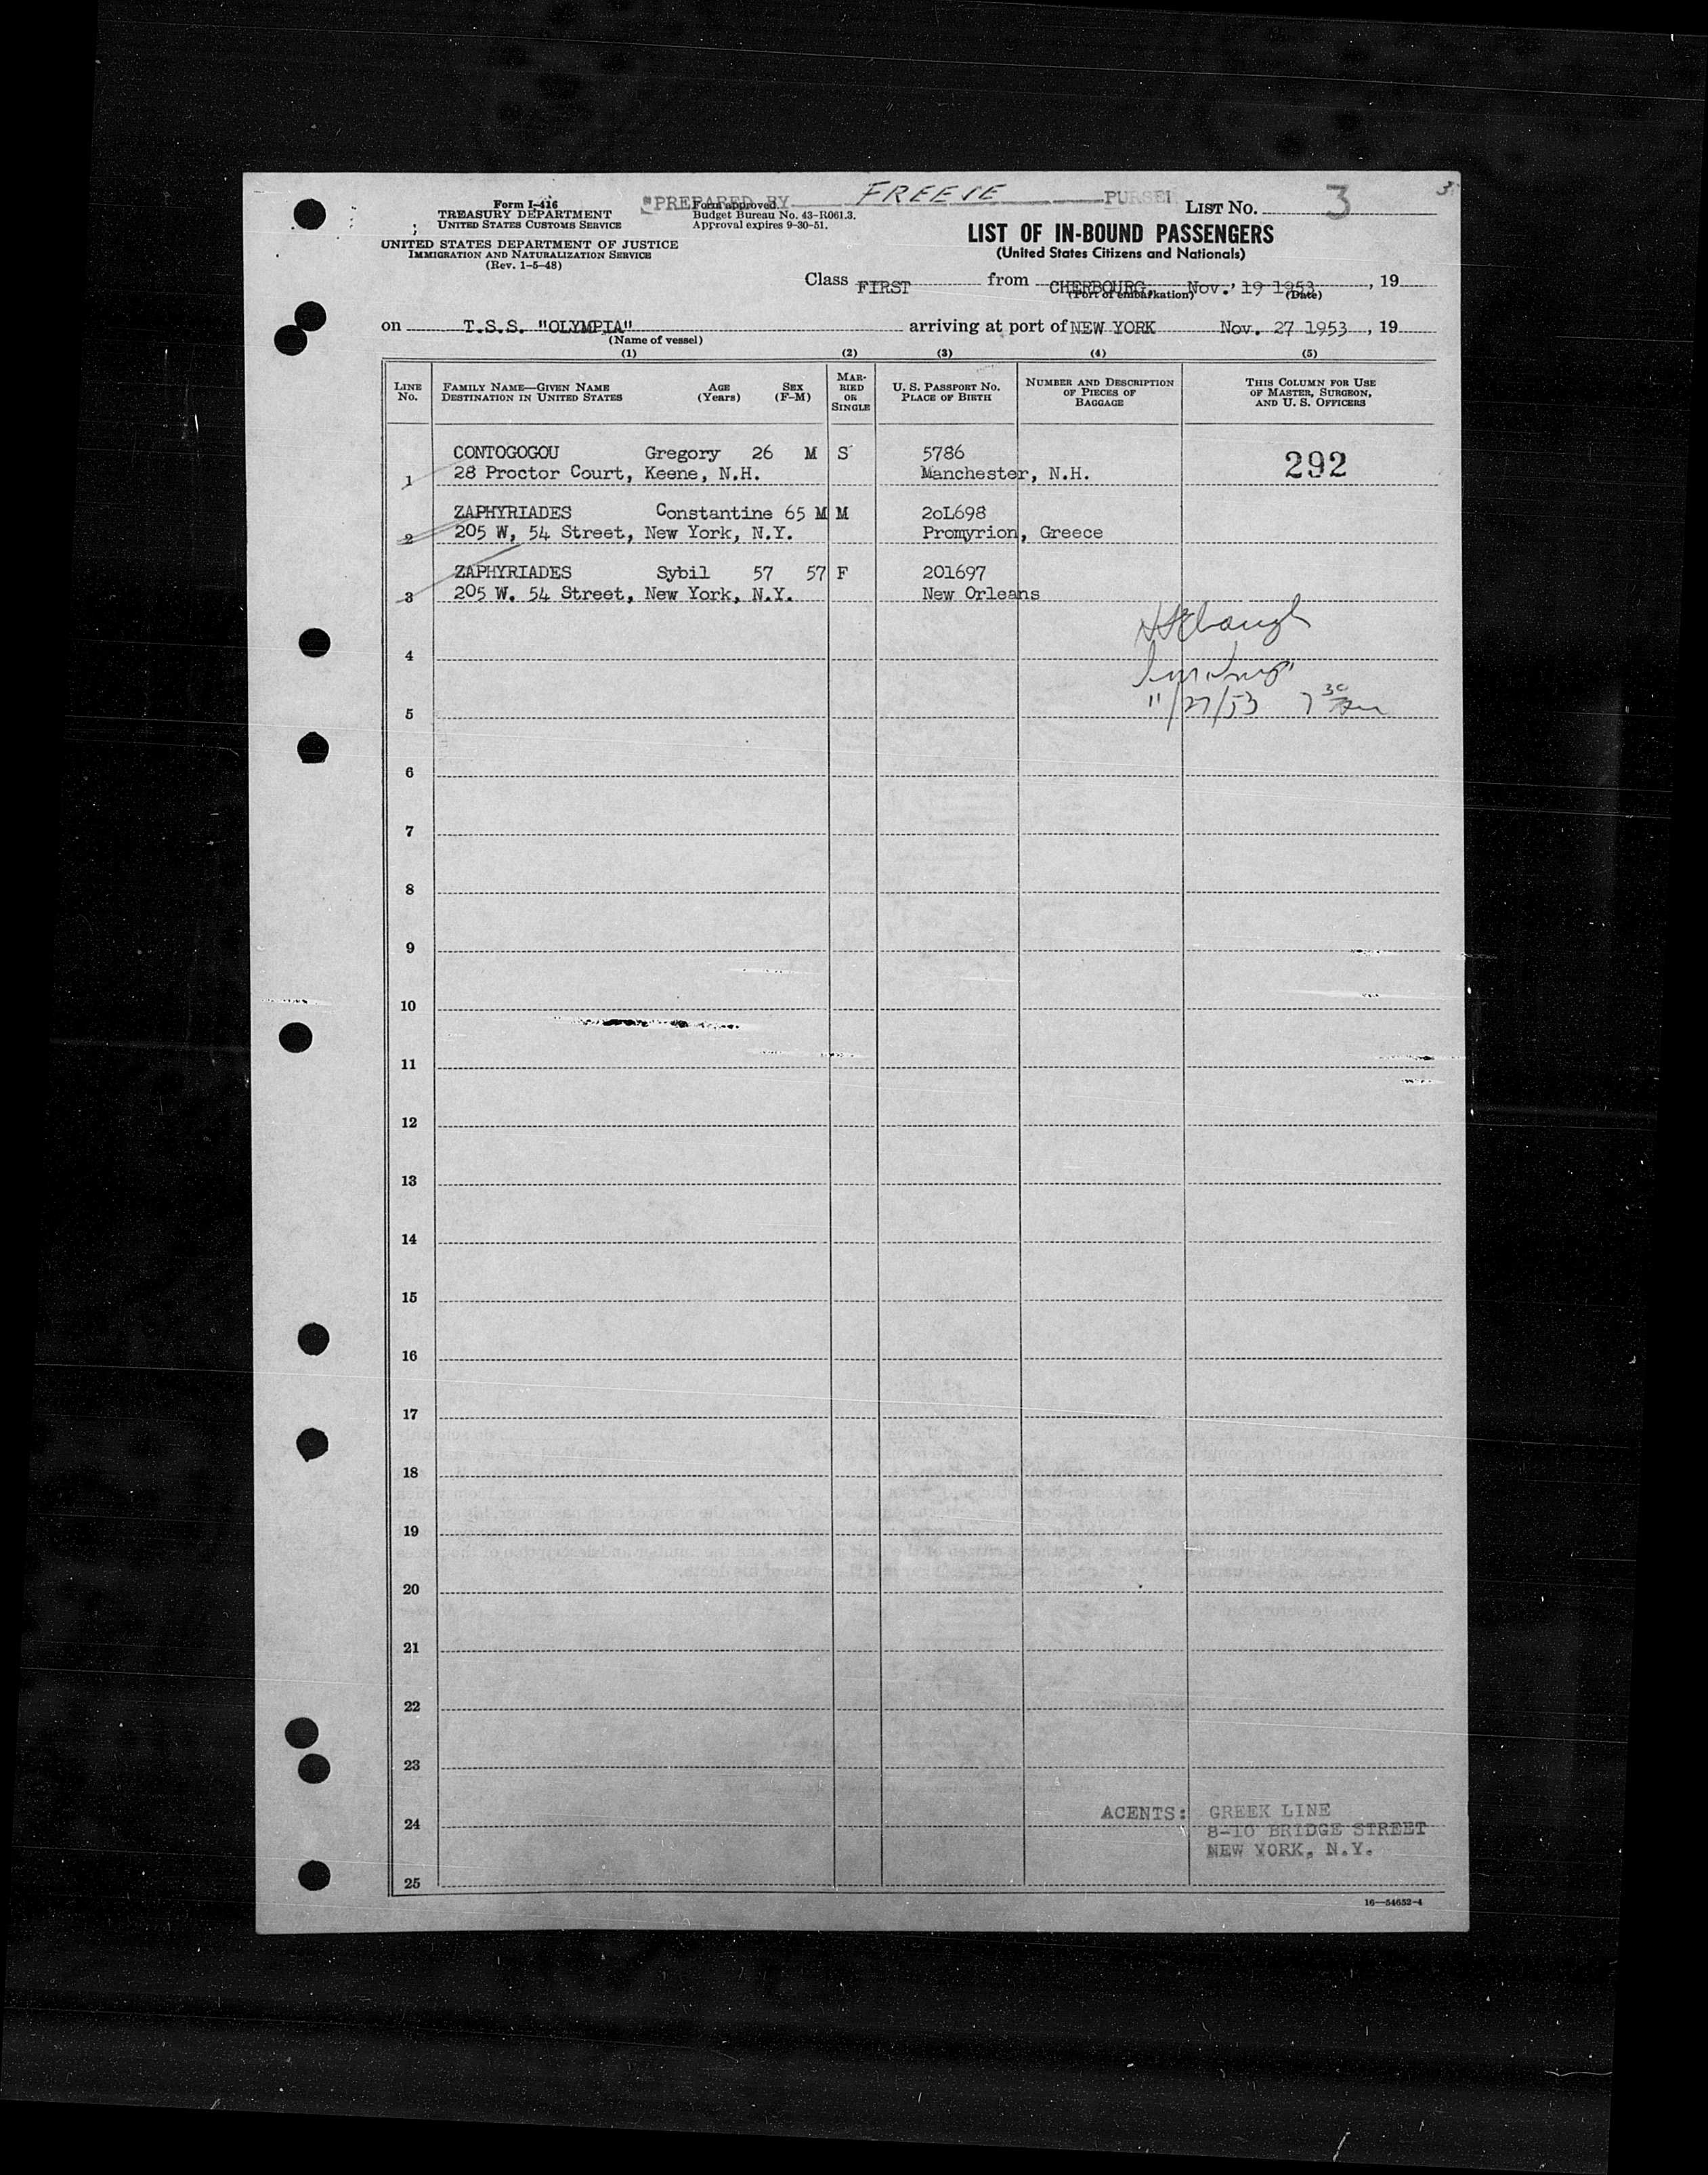 Form I-416
TREASURY DEPARTMENT
UNITED STATES CUSTOMS SERVICE
UNITED STATES DEPARTMENT OF JUSTICE
IMMIGRATION AND NATURALIZATION SERVICE
(Rev. 1-5-48)
PREPARED BY FREESE PURSER
Form approved.
Budget Bureau No. 43-R061.3.
Approval expires 9-30-51.
LIST NO. 3
3
LIST OF IN-BOUND PASSENGERS
(United States Citizens and Nationals)
Class FIRST from CHERBOURG, Nov. 19 1953, 19
(Port of embarkation) (Date)
on T.S.S. "OLYMPIA" arriving at port of NEW YORK Nov. 27 1953, 19
(Name of vessel)
(1) (2) (3) (4) (5)
LINE NO. FAMILY NAME—GIVEN NAME DESTINATION IN UNITED STATES AGE (Years) SEX (F-M) MARRIED OR SINGLE U. S. PASSPORT NO. PLACE OF BIRTH NUMBER AND DESCRIPTION OF PIECES OF BAGGAGE THIS COLUMN FOR USE OF MASTER, SURGEON, AND U. S. OFFICERS
CONTOGOGOU Gregory 26 M S 5786 292
1 28 Proctor Court, Keene, N.H. Manchester, N.H.
ZAPHYRIADES Constantine 65 M M 2oL698
2 205 W, 54 Street, New York, N.Y. Promyrion, Greece
ZAPHYRIADES Sybil 57 57 F 201697
3 205 W. 54 Street, New York, N.Y. New Orleans
4
5 11/27/53 7 30
6
7
8
9
10
11
12
13
14
15
16
17
18
19
20
21
22
23
24 ACENTS: GREEK LINE
8-10 BRIDGE STREET
NEW YORK, N.Y.
25
16—54652-4